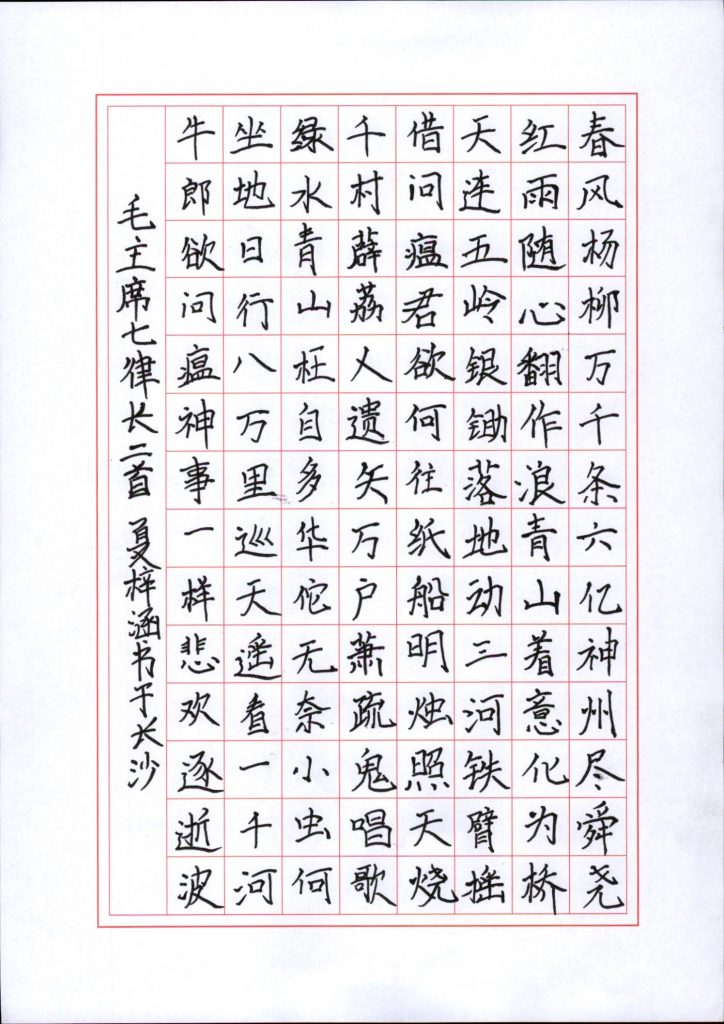 春风杨柳万千条六亿神州尽舜尧
红雨随心翻作浪青山着意化为桥
天连五岭银锄落地动三河铁臂摇
借问瘟君欲何往纸船明烛照天烧
千村薜荔人遗矢万户萧疏鬼唱歌
绿水青山枉自多华佗无奈小虫何
坐地日行八万里巡天遥看一千河
牛郎欲问瘟神事一样悲欢逐逝波
毛主席七律长二首 夏梓涵书于长沙